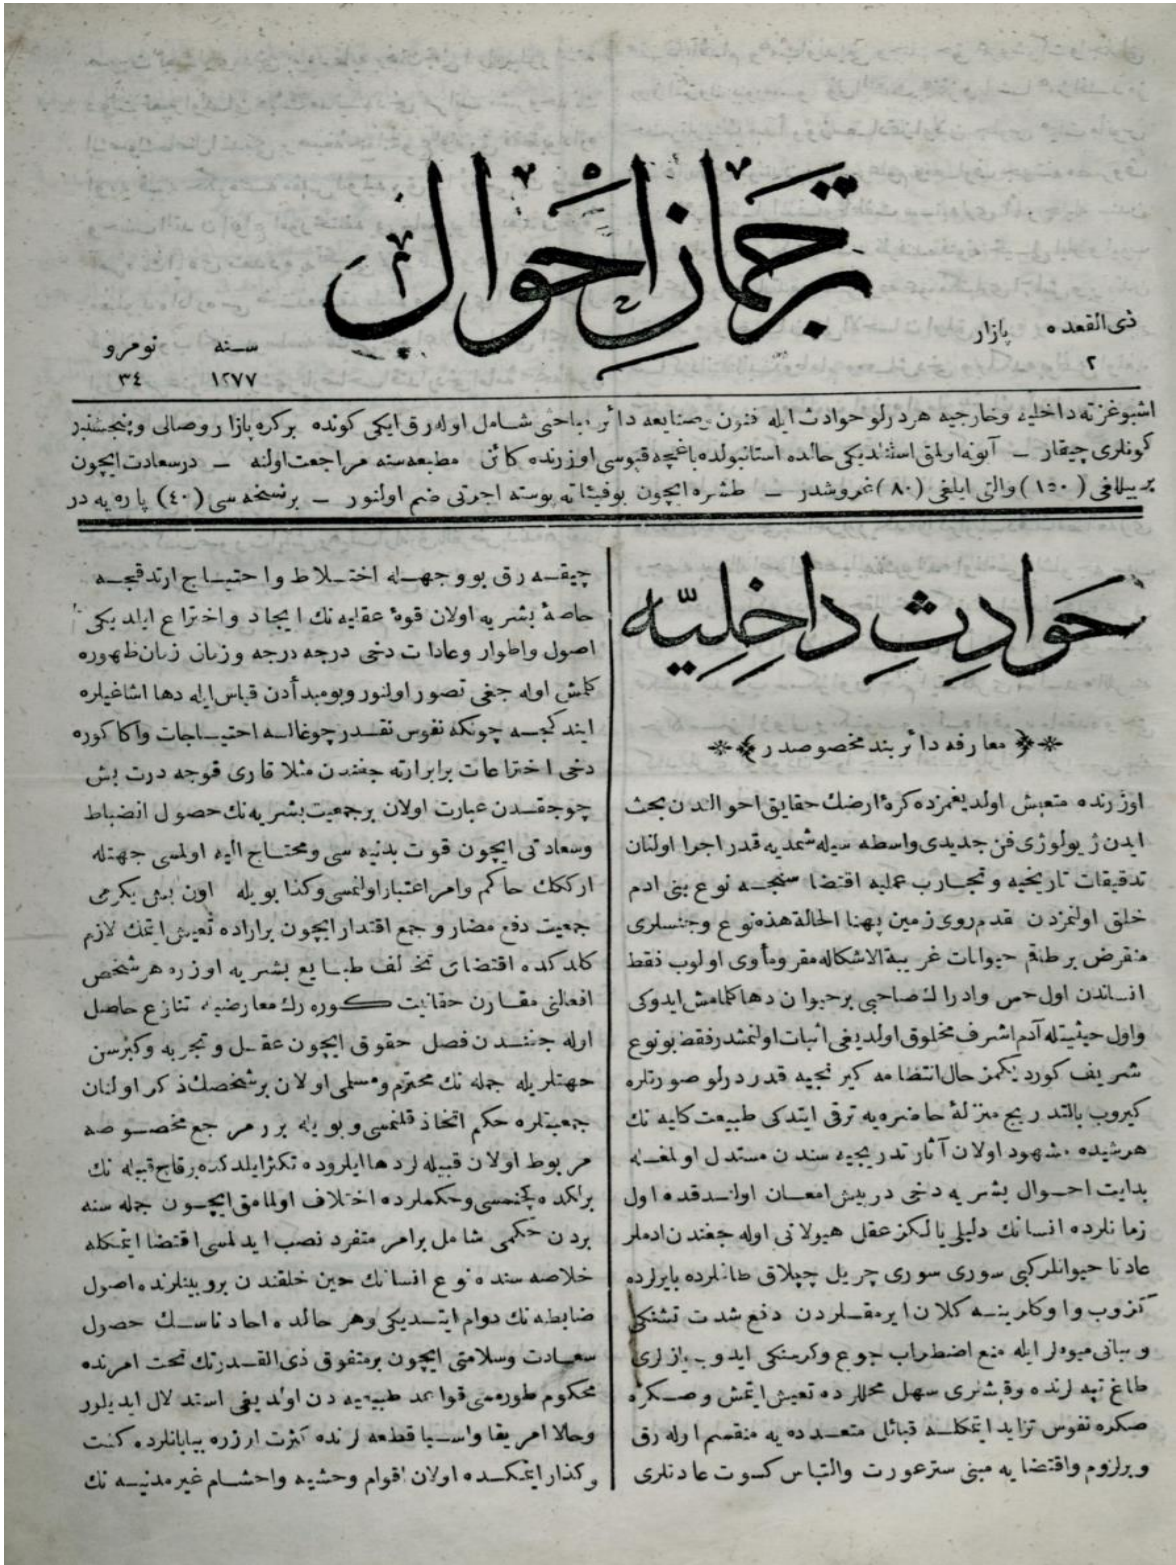 ترجمان احوال
ذی القعده پازار
٢
سنه نومرو
١٢٧٧ ٣٤
اشبو غزته داخلیه وخارجیه هر درلو حوادث ایله فنون وصنایعه دائر مباحثی شامل اوله رق ایکی کونده بر کره پازار وصالی وپنجشنبه
کونلری چیقار – آبونه اولمق استندیکی حالده استانبولده باغچه قپوسی اوزرنده کائن مطبعه سنه مراجعت اولنه – درسعادت ایچون
بر ییللغی (١٥٠) والتی ایلغی (٨٠) غروشدر – طشره ایچون بو فیئاته پوسته اجرتی ضم اولنور – بر نسخه سی (٤٠) پاره یه در
حوادث داخلیه
معارفه دائر بند مخصوصدر
اوزرنده متعیش اولدیغمزده کرهٔ ارضك حقایق احوالندن بحث
ایدن ژیولوژی فن جدیدی واسطه سیله شمدیه قدر اجرا اولنان
تدقیقات تاریخیه وتجارب عملیه اقتضا سنجه نوع بنی ادم
خلق اولنمزدن مقدم روی زمین بهذا الحالة هذه نوع وجنسلری
منقرض بر طاقم حیوانات غریبة الاشکاله مقر ومأوی اولوب فقط
انساندن اول حس وادراك صاحبی بر حیوان دها کلمامش ایدوکی
واول حیثیتله آدم اشرف مخلوق اولدیغی اثبات اولنمشدر فقط بو نوع
شریف کوردیکمز حال انتظامه کیرنجیه قدر درلو صورتلره
کیروب بالتدریج منزلهٔ حاضره یه ترقی ایتدکی طبیعت کلیه نك
هر شیده مشهود اولان آثار تدریجیه سندن مستدل اولمغله
بدایت احوال بشریه دخی درپیش امعان اولندقده اول
زمانلرده انسانك دلیلی یالکز عقل هیولانی اوله جغندن ادملر
عادتا حیوانلر کبی سوری سوری چریل چپلاق طاغلرده بایرلرده
کزوب واوکلرینه کلان ایرمقلردن دفع شدت تشنکی
ویبانی میوه لر ایله منع اضطراب جوع وکرسنکی ایدوب یازلری
طاغ تپه لرنده وقیشلری سهل محللرده تعیش ایتمش وصکره
صکره نفوس تزاید ایتمکله قبائل متعدده یه منقسم اوله رق
وبر لزوم واقتضایه مبنی ستر عورت والتباس کسوت عادتلری
چیقه رق بو وجهله اختلاط واحتیاج ارتدقجه
خاصهٔ بشریه اولان قوهٔ عقلیه نك ایجاد واختراع ایلدیکی
اصول واطوار وعادات دخی درجه درجه وزمان زمان ظهوره
کلمش اوله جغی تصور اولنور وبو مبدأدن قیاس ایله دها اشاغیلره
ایندکجه چونکه نفوس نقدر چوغالسه احتیاجات واکا کوره
دخی اختراعات برابر ارته جغندن مثلا قاری قوجه درت بش
چوجقدن عبارت اولان بر جمعیت بشریه نك حصول انضباط
وسعادتی ایچون قوت بدنیه سی ومحتاج الیه اولمسی جهتله
ارککك حاکم وامر اعتبار اولنمسی وکذا بویله اون بش یکرمی
جمعیت دفع مضار وجمع اقتدار ایچون براراده تعیش ایتمك لازم
کلدکده اقتضای تخالف طبایع بشریه اوزره هر شخص
افعالنی مقارن حقانیت کوره رك معارضه وتنازع حاصل
اوله جغندن فصل حقوق ایچون عقل وتجربه وکبر سن
جهتلریله جمله نك محترم ومسلمی اولان بر شخصك ذکر اولنان
جمعیتلره حکم اتخاذ قلنمسی وبویله برر مرجع مخصوصه
مربوط اولان قبیله لر دها ایلروده تکثر ایلدکده بر قاچ قبیله نك
بر لکده کچنمسی وحکملرده اختلاف اولمامق ایچون جمله سنه
بردن حکمی شامل بر امر متفرد نصب ایدلمسی اقتضا ایتمکله
خلاصه سنده نوع انسانك حین خلقندن برو بینلرنده اصول
ضابطه نك دوام ایتدیکی وهر حالده احاد ناسك حصول
سعادت وسلامتی ایچون بر متفوق ذی القدرتك تحت امرنده
محکوم طورمسی قواعد طبیعیه دن اولدیغی استدلال ایدیلور
وحالا امریقا واسیا قطعه لرنده کثرت اوزره بیابانلرده کشت
وکذار ایتمکده اولان اقوام وحشیه واحشام غیر مدنیه نك